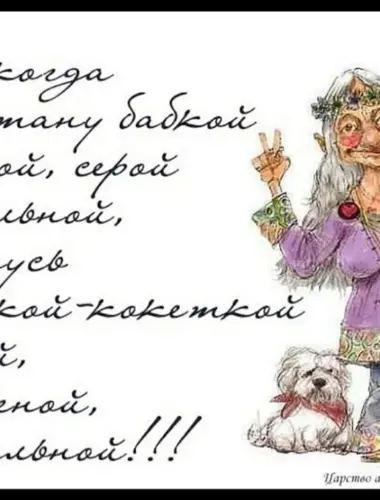 когда
тану бабкой
ой, серой
льной,
усь
кой-кокеткой
й,
ной,
льной!!!
Царство а